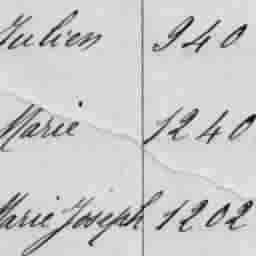 Julien 940
Marie 1240
Marie Joseph 1202